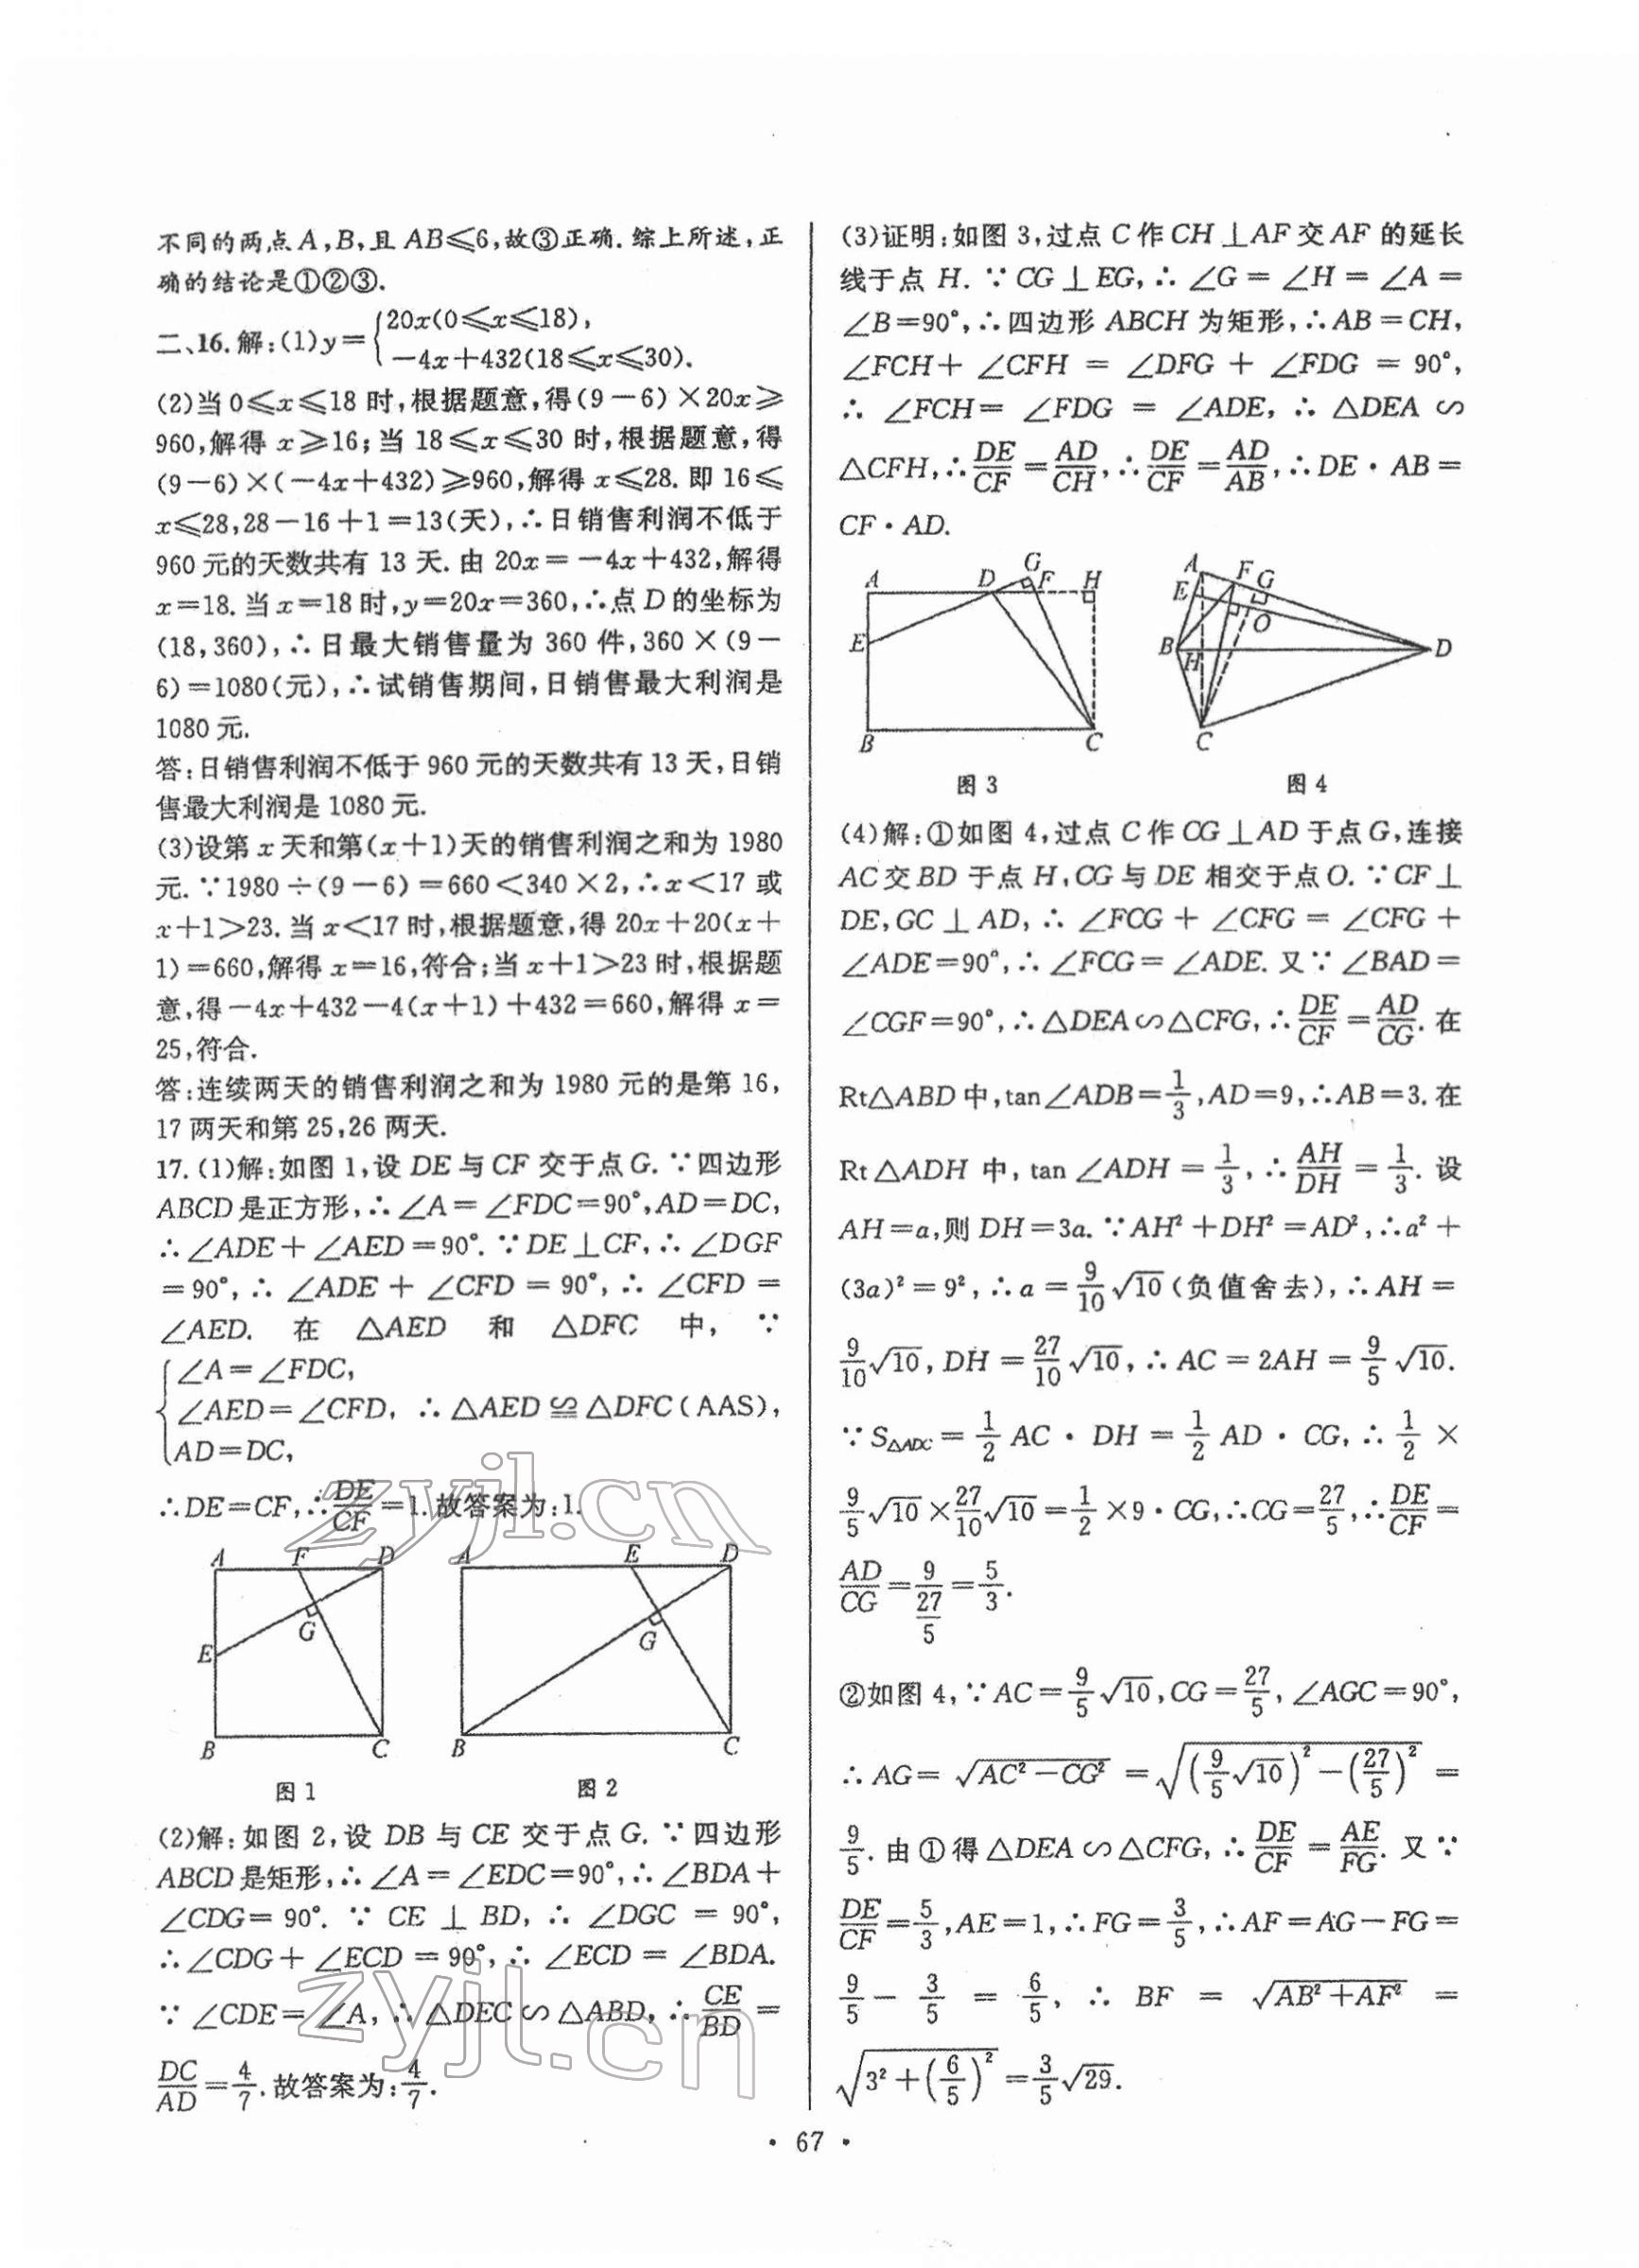 不同的两点 A,B,且 AB≤6,故③正确.综上所述,正
确的结论是①②③.
二、16.解:(1)y={20x(0≤x≤18),
-4x+432(18≤x≤30).
(2)当 0≤x≤18 时,根据题意,得(9-6)×20x≥
960,解得 x≥16;当 18≤x≤30 时,根据题意,得
(9-6)×(-4x+432)≥960,解得 x≤28.即 16≤
x≤28,28-16+1=13(天),∴日销售利润不低于
960 元的天数共有 13 天.由 20x=-4x+432,解得
x=18.当 x=18 时,y=20x=360,∴点 D 的坐标为
(18,360),∴日最大销售量为 360 件,360×(9-
6)=1080(元),∴试销售期间,日销售最大利润是
1080 元.
答:日销售利润不低于 960 元的天数共有 13 天,日销
售最大利润是 1080 元.
(3)设第 x 天和第(x+1)天的销售利润之和为 1980
元.∵1980÷(9-6)=660<340×2,∴x<17 或
x+1>23.当 x<17 时,根据题意,得 20x+20(x+
1)=660,解得 x=16,符合;当 x+1>23 时,根据题
意,得-4x+432-4(x+1)+432=660,解得 x=
25,符合.
答:连续两天的销售利润之和为 1980 元的是第 16,
17 两天和第 25,26 两天.
17.(1)解:如图 1,设 DE 与 CF 交于点 G.∵四边形
ABCD 是正方形,∴∠A=∠FDC=90°,AD=DC,
∴∠ADE+∠AED=90°.∵DE⊥CF,∴∠DGF
=90°,∴∠ADE+∠CFD=90°,∴∠CFD=
∠AED. 在 △AED 和 △DFC 中, ∵
{∠A=∠FDC,
∠AED=∠CFD, ∴△AED≌△DFC(AAS),
AD=DC,
∴DE=CF,∴DE/CF=1.故答案为:1.
A F D G E B C
A E D G B C
图 1 图 2
(2)解:如图 2,设 DB 与 CE 交于点 G.∵四边形
ABCD 是矩形,∴∠A=∠EDC=90°,∴∠BDA+
∠CDG=90°.∵CE⊥BD,∴∠DGC=90°,
∴∠CDG+∠ECD=90°,∴∠ECD=∠BDA.
∵∠CDE=∠A,∴△DEC∽△ABD,∴CE/BD=
DC/AD=4/7.故答案为:4/7.
(3)证明:如图 3,过点 C 作 CH⊥AF 交 AF 的延长
线于点 H.∵CG⊥EG,∴∠G=∠H=∠A=
∠B=90°,∴四边形 ABCH 为矩形,∴AB=CH,
∠FCH+∠CFH=∠DFG+∠FDG=90°,
∴∠FCH=∠FDG=∠ADE,∴△DEA∽
△CFH,∴DE/CF=AD/CH,∴DE/CF=AD/AB,∴DE·AB=
CF·AD.
A D G F H E B C
A F G E O B H D C
图 3 图 4
(4)解:①如图 4,过点 C 作 CG⊥AD 于点 G,连接
AC 交 BD 于点 H,CG 与 DE 相交于点 O.∵CF⊥
DE,GC⊥AD,∴∠FCG+∠CFG=∠CFG+
∠ADE=90°,∴∠FCG=∠ADE.又∵∠BAD=
∠CGF=90°,∴△DEA∽△CFG,∴DE/CF=AD/CG.在
Rt△ABD 中,tan∠ADB=1/3,AD=9,∴AB=3.在
Rt△ADH 中,tan∠ADH=1/3,∴AH/DH=1/3.设
AH=a,则 DH=3a.∵AH²+DH²=AD²,∴a²+
(3a)²=9²,∴a=9/10√10(负值舍去),∴AH=
9/10√10,DH=27/10√10,∴AC=2AH=9/5√10.
∵S△ADC=1/2AC·DH=1/2AD·CG,∴1/2×
9/5√10×27/10√10=1/2×9·CG,∴CG=27/5,∴DE/CF=
AD/CG=9/(27/5)=5/3.
②如图 4,∵AC=9/5√10,CG=27/5,∠AGC=90°,
∴AG=√(AC²-CG²)=√((9/5√10)²-(27/5)²)=
9/5.由①得△DEA∽△CFG,∴DE/CF=AE/FG.又∵
DE/CF=5/3,AE=1,∴FG=3/5,∴AF=AG-FG=
9/5-3/5=6/5,∴BF=√(AB²+AF²)=
√(3²+(6/5)²)=3/5√29.
· 67 ·
zyjl.cn
zyjl.cn